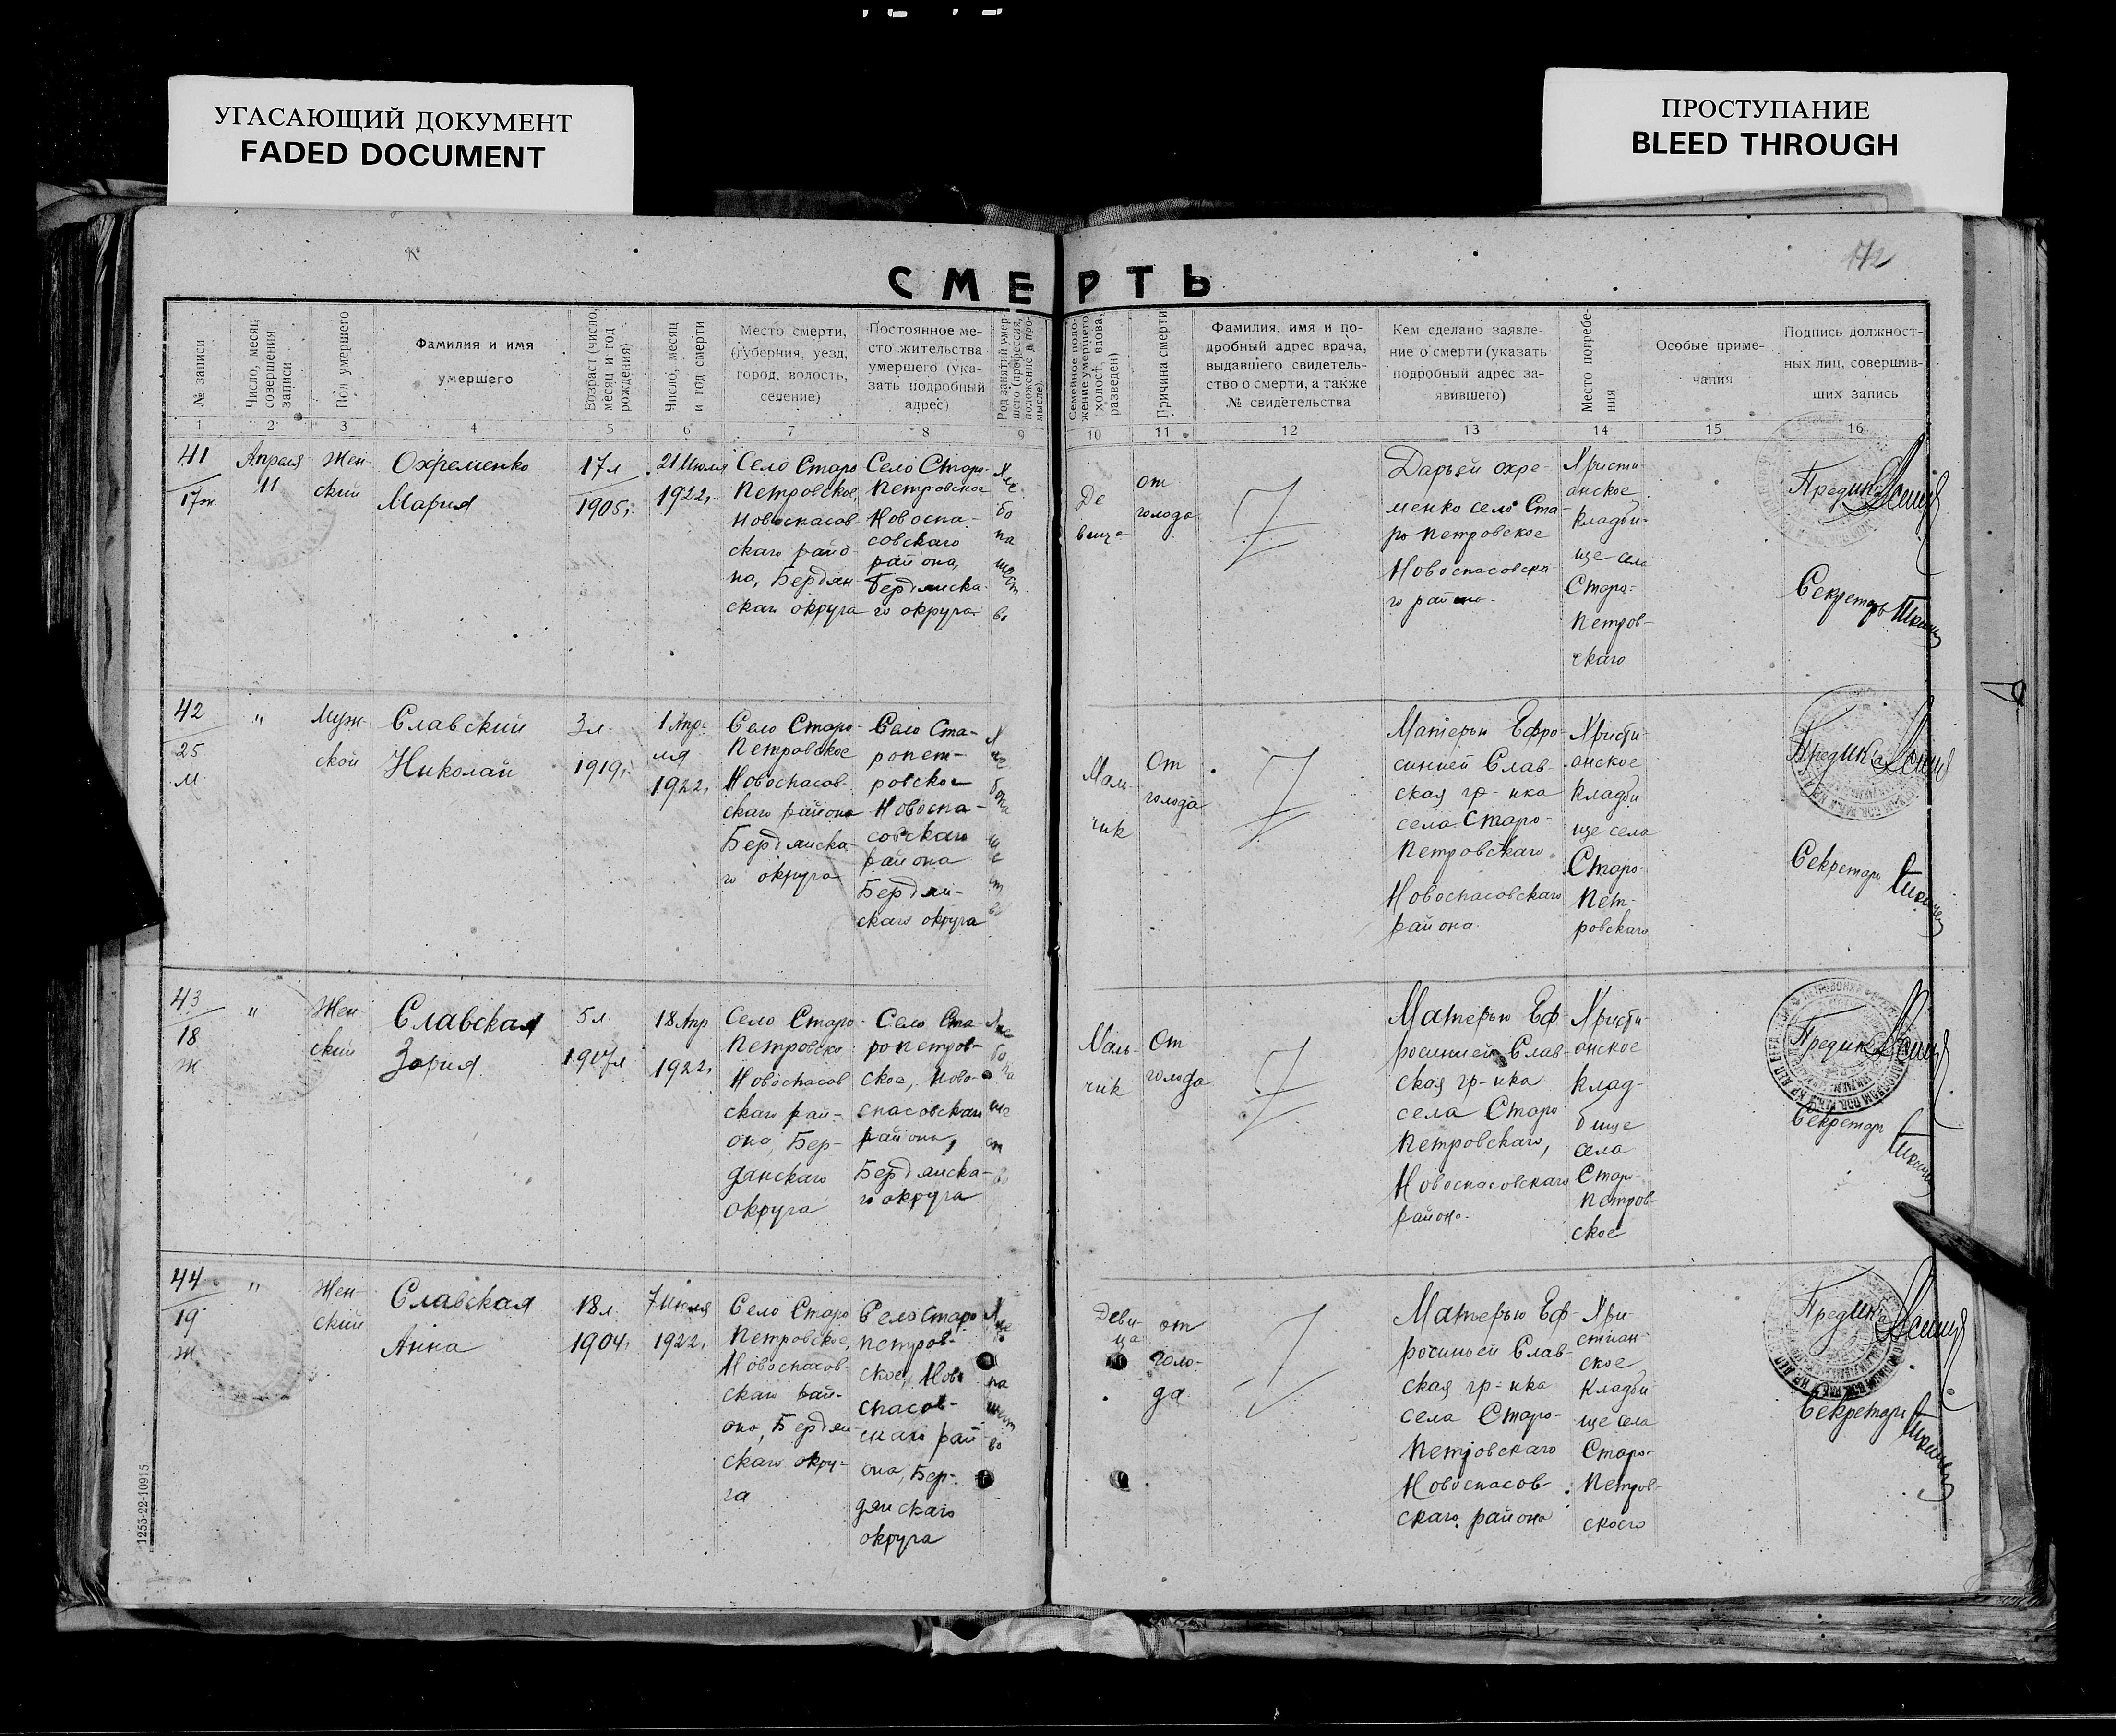 УГАСАЮЩИЙ ДОКУМЕНТ
FADED DOCUMENT
ПРОСТУПАНИЕ
BLEED THROUGH
СМЕРТЬ
№ записи
Число, месяц
совершения
записи
Пол умершего
Фамилия и имя
умершего
Возраст (число,
месяц и год
рождения)
Число, месяц
и год смерти
Место смерти,
(губерния, уезд,
город, волость,
селение)
Постоянное ме-
сто жительства
умершего (ука-
зать подробный
адрес)
Род занятий умер-
шего (профессия,
положение в про-
мысле).
Семейное поло-
жение умершего
(холост, вдова,
разведен)
Причина смерти
Фамилия, имя и по-
дробный адрес врача,
выдавшего свидетель-
ство о смерти, а также
№ свидетельства
Кем сделано заявле-
ние о смерти (указать
подробный адрес за-
явившего)
Место погребе-
ния
Особые приме-
чания
Подпись должност-
ных лиц, совершив-
ших запись
1 2 3 4 5 6 7 8 9 10 11 12 13 14 15 16
41
17ж
Апреля
11
Жен-
ский
Охременко
Мария
17л
1905г.
21 Июля
1922г.
Село Старо
Петровское,
Новоспасов-
скаго райо-
на, Бердян-
скаго округа
Село Старо-
Петровское
Новоспа-
совскаго
района,
Бердянска-
го округа
Хле
бо
па
шест
во
Де
вица
от
голода
Дарьей Охре-
менко село Ста-
ро Петровское
Новоспасовска-
го района.
Христи-
анское
кладби-
ще села
Старо-
Петров-
скаго
Предика
Секретарь
42
25
м
"
Муж-
ской
Славский
Николай
3л.
1919г.
1 Апре
ля
1922г.
Село Старо-
Петровское
Новоспасов-
скаго района
Бердянска-
го округа
Село Ста-
ропет-
ровское
Новоспа-
совскаго
района
Бердян-
скаго округа
Х
ле
бопа
ше
ст
во
Маль-
чик
От
голода
Матерью Ефро
синией Слав-
ская гр-нка
села Старо-
Петровскаго
Новоспасовскаго
района.
Христи-
анское
кладби
ще села
Старо-
Пет-
ровскаго
Предика
Секретарь
43
18
ж
"
Жен
ский
Славская
5л.
18 Апр
1922г.
Село Старо-
Петровско
Новоспасов-
скаго рай-
она, Бер-
дянскаго
округа
Село Ста-
ропетров-
ское, Ново-
спасовскаго
района,
Бердянска-
го округа
Хле
бо
па
ше
ст
во
Маль-
чик
От
голода
Матерью Еф-
росинией Слав-
ская гр-нка
села Старо
Петровскаго,
Новоспасовскаго
района.
Христи-
анское
клад-
бище
села
Старо-
Петров-
ское
Предика
Секретарь
44
19
ж
"
Жен
ский
Славская
Анна
18л.
1904г.
7 Июля
1922г.
Село Старо
Петровское,
Новоспасов-
скаго рай-
она, Бердян-
скаго окру-
га
Село Старо
петров-
ское, Ново
спасов-
скаго рай
она, Бер-
дянскаго
округа
Хле
бо
па
шест
во
Деви
ца
от
голо-
да
Матерью Еф-
росиньей Слав-
ская гр-нка
села Старо-
Петровскаго
Новоспасов-
скаго района
Хри-
стиан-
ское
кладби
ще села
Старо-
Петров-
скаго
Предика
Секретарь
1253-22-10915